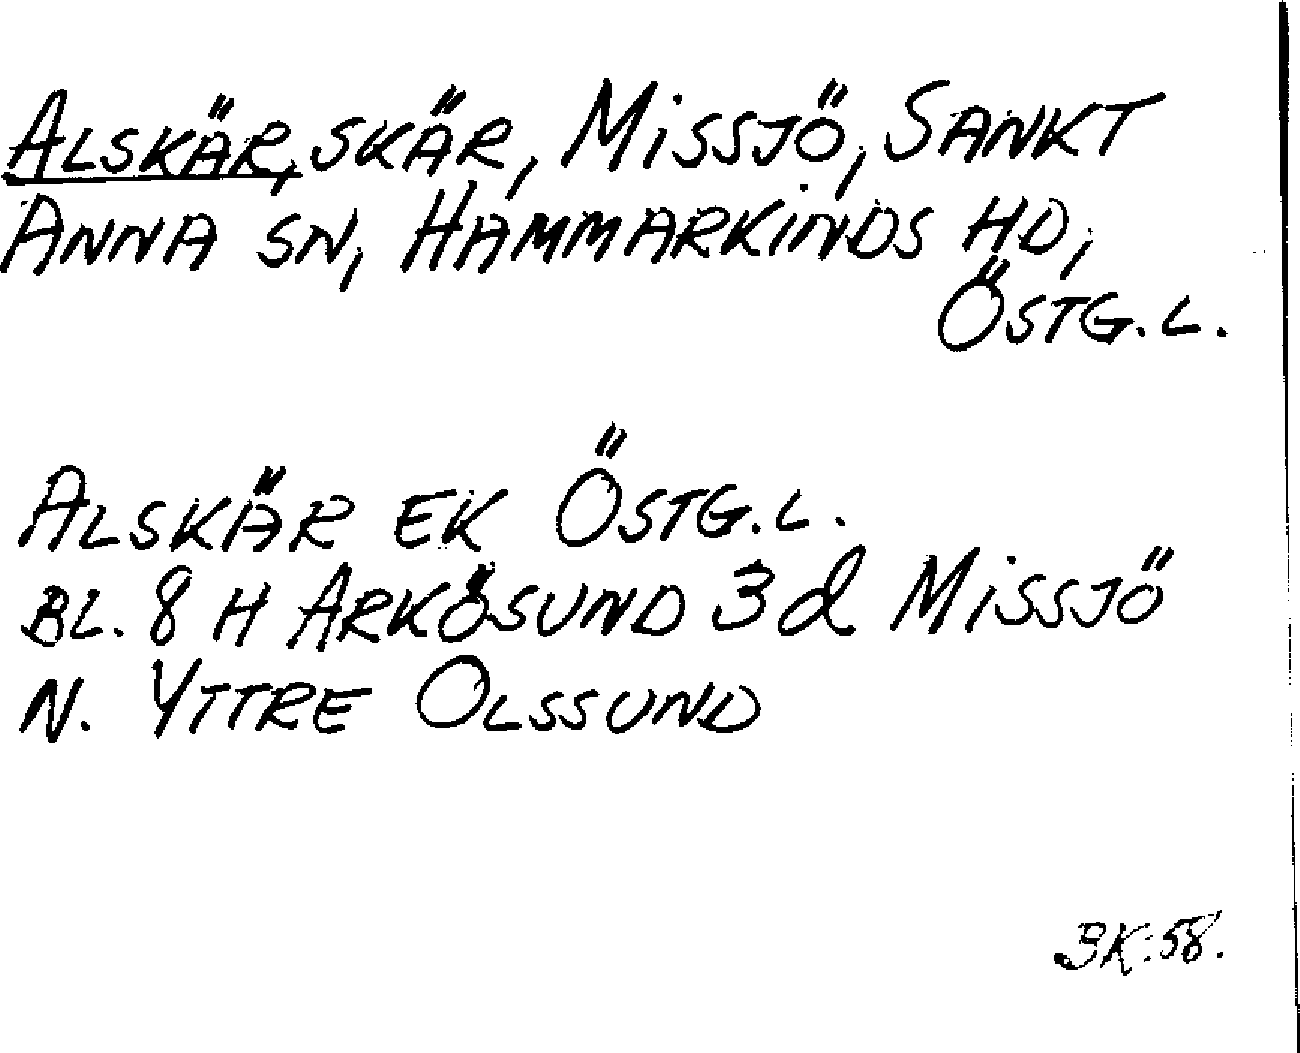 ALSKÄR, SKÄR, MISSJÖ, SANKT
ANNA SN, HAMMARKINDS HD,
ÖSTG.L.
ALSKÄR EK ÖSTG.L.
BL. 8 H ARKÖSUND 3 d MISSJÖ
N. YTTRE OLSSUND
BK:58.